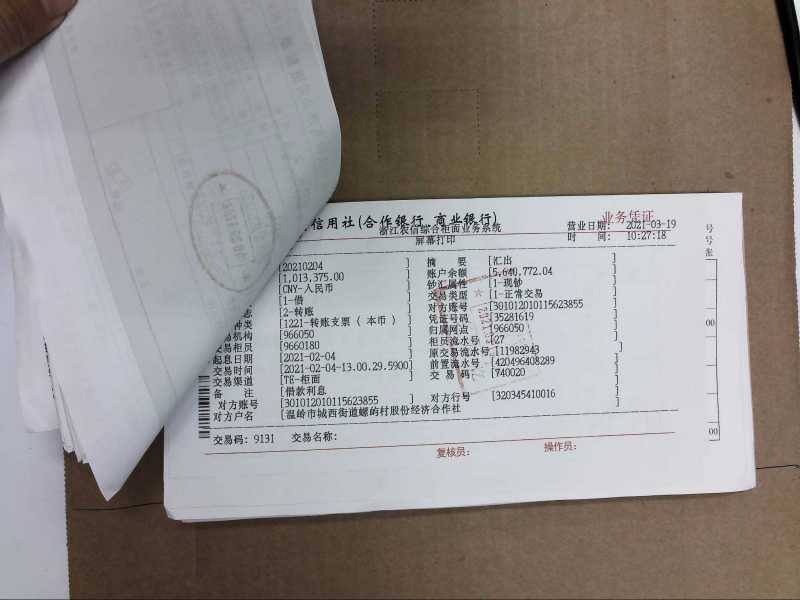 信用社(合作银行 商业银行)
业务凭证
浙江农信综合柜面业务系统
营业日期: 2021-03-19
屏幕打印
时 间: 10:27:18
号
号
账
[20210204 ] 摘 要 [汇出 ]
[1,013,375.00 ] 账户余额 [5,640,772.04 ]
[CNY-人民币 ] 钞汇属性 [1-现钞 ]
[1-借 ] 交易类型 [1-正常交易 ]
志 [2-转账 ] 对方账号 [301012010115623855 ]
种类 [1221-转账支票（本币） ] 凭证号码 [35281619 ]
易机构 [966050 ] 归属网点 [966050 ]
交易柜员 [9660180 ] 柜员流水号[27 ]
起息日期 [2021-02-04 ] 原交易流水号[11982943 ]
交易时间 [2021-02-04-13.00.29.5900] 前置流水号[420496408289 ]
交易渠道 [TE-柜面 ] 交 易 码:[740020 ]
备 注 [借款利息 ]
对方账号 [301012010115623855 ] 对方行号 [320345410016 ]
对方户名 [温岭市城西街道螺屿村股份经济合作社 ]
交易码: 9131 交易名称:
复核员: 操作员:
00
00